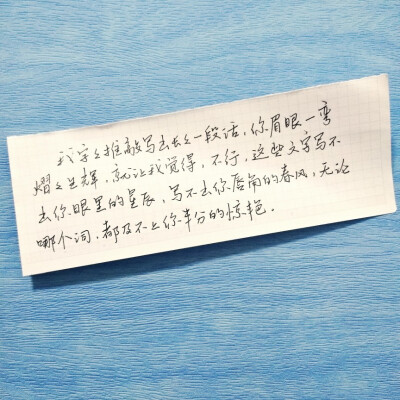 我字々推敲写出长々一段话,你眉眼一弯
熠々生辉,就让我觉得,不行,这些文字写不
出你眼里的星辰,写不出你唇角的春风,无论
哪个词,都及不上你半分的惊艳.